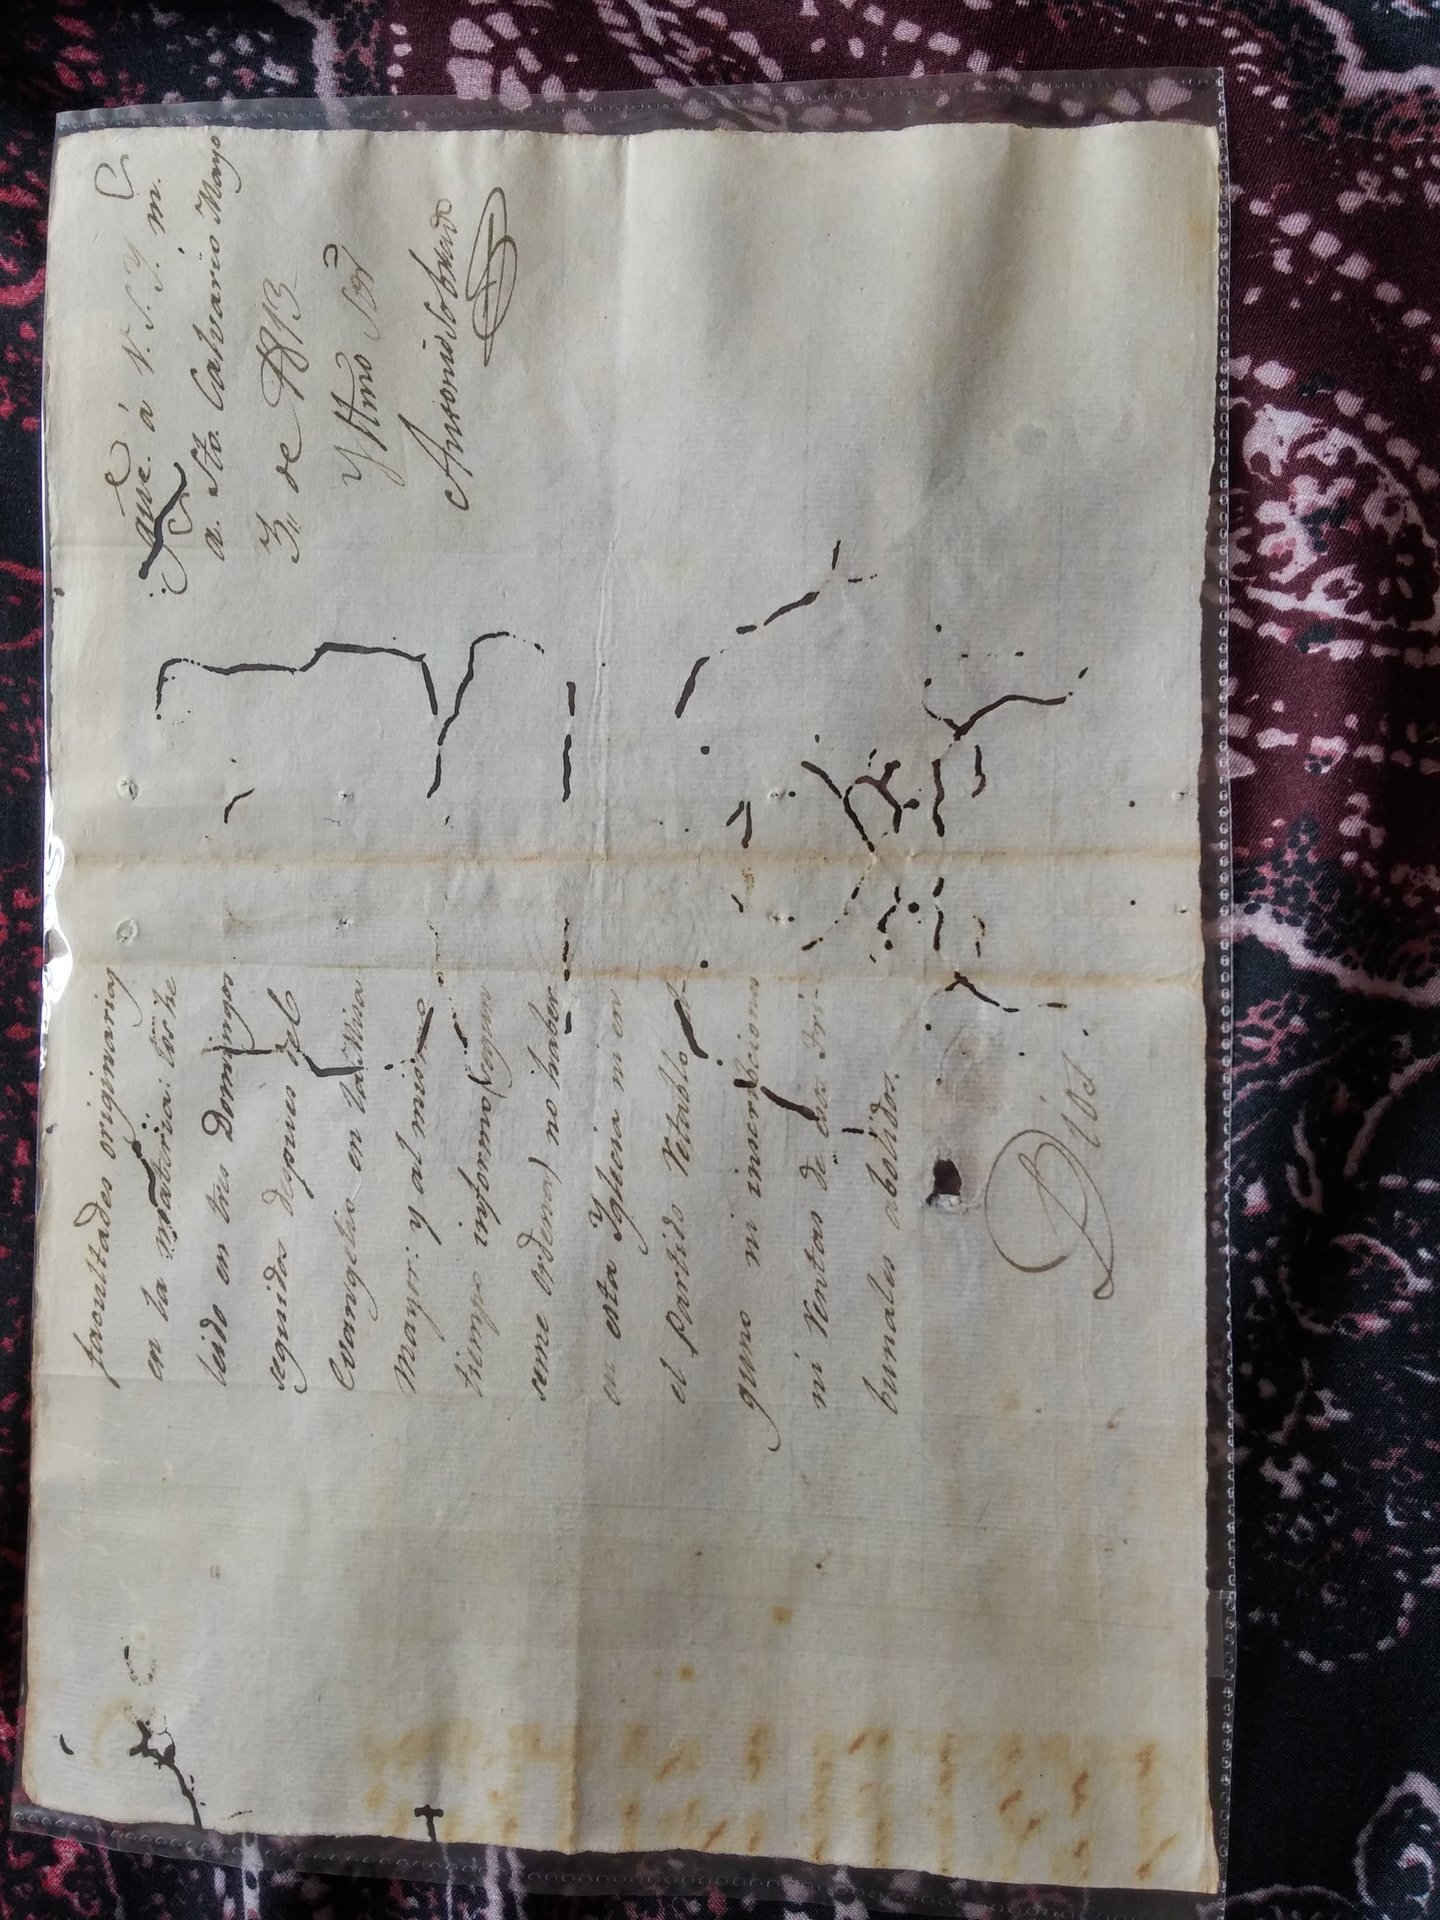 facultades originarias
en la materia: las he
leido en tres Domingos
seguidos despues del
Evangelio en la Misa
Mayor: y al mismo
tiempo informo (segun
seme ordena) no haber
en esta Yglesia ni en
el Partido Retablo al-
guno ni inscripciones
ni Ventas de estos Tri-
bunales abolidos.
Dios
gue. á V. S. Y. m.
a. Sto. Calvario Mayo
3,, de 1813
Yltmo Sor
Antonio